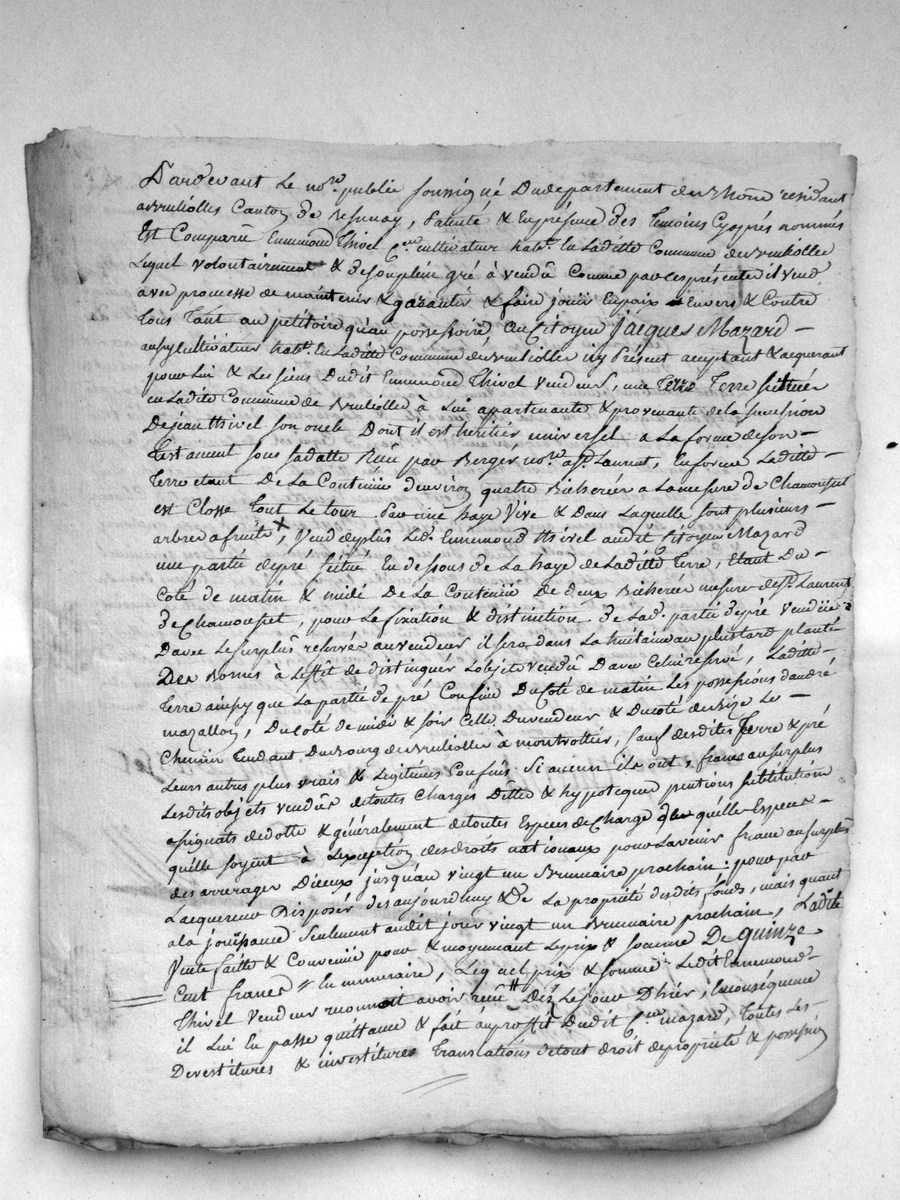 Pardevant Le nore. publicq soussigné Du departement du Rhône residant
a Brullolles Canton de Bessenay, Patenté & En présence des Temoins Cy aprés nommés
Est Comparû Ennemond Thivel Cen. cultivateur habt. En Laditte Commune de Brullolle
Lequel volontairement & de Son plein gré à vendû Comme par Ces présente il vend
avec promesse de maintenir & garantir & faire jouir En paix Envers & Contre
Tous Tant au pétitoire qu'au possessoire, au Citoyen jacques Mazard –
aussy cultivateur habt. En Laditte Commune de Brullolles icy Présent acceptant & acquerant
pour Lui & Les Siens Dudit Ennemond Thivel Vendeur, une Terre située
en Ladite Commune de Brullolle à Lui appartenante & provenante de la succession
De jean thivel son oncle Dont il est heritier universel a La forme de son –
Testament sous sa datte Reçu par Berger nore. a st. Laurent, En forme Laditte
Terre etant De La Contenüe d'environ quatre Bicherées a La mesure de Chamousset
est Closse Tout Le tour Par une haye Vive & Dans Laquelle sont plusieurs –
arbres a fruits, Vend de plus Led. Ennemond thivel audit Citoyen Mazard
une partie de pré scitué En dessous de La haye de Laditte Terre, Etant Du –
Coté de matin & midi De La Contenüe De deux Bicherées mesure de st. Laurent
de Chamousset, pour La fixation & distinction De Lad. partie de pré vendüe
D'avec Le surplus reservé au vendeur il sera dans La huitaine au plustard planté
Des Bornes à L'effet de distinguer L'objet vendu D'avec Celui reservé, Laditte –
Terre ainsy que La partie de pré Confine Du Coté de matin Les possessions d'andré
mazallon, Du Coté de midi & soir Celle Du vendeur & Du coté de Bize Le –
Chemin Tendant Du Bourg de Brullolles à montrottier, sauf desdites Terre & pré
Leurs autres plus vrais & Legitimes Confins Si aucun ils ont, francs au surplus
Lesdits objets vendus de toutes Charges Dettes & hypoteque pentions substitutions
assignats de dotte & généralement de toutes Especes de Charge de quelle Espece –
qu'elle soyent à L'exception des droits nationaux pour L'avenir franc au surplus
des arrerages D'iceux jusqu'au vingt un Brumaire prochain : pour par
L'acquereur Disposer des aujourdhuy De La propriété desdits fonds, mais quant
a la jouissance Seulement audit jour vingt un Brumaire prochain, Ladite
Vente faitte & Convenüe pour & moyennant Le prix & Somme De quinze
Cent francs En numeraire, Lequel prix & somme Ledit Ennemond –
Thivel Vendeur reconnoit avoir reçu Dés Le jour D'hier ; En conséquence
il Lui En passe quittance & fait au proffit Dudit Cen. mazard, toutes Les
Devestitures & investitures Translations de tout droit de propriété & possession